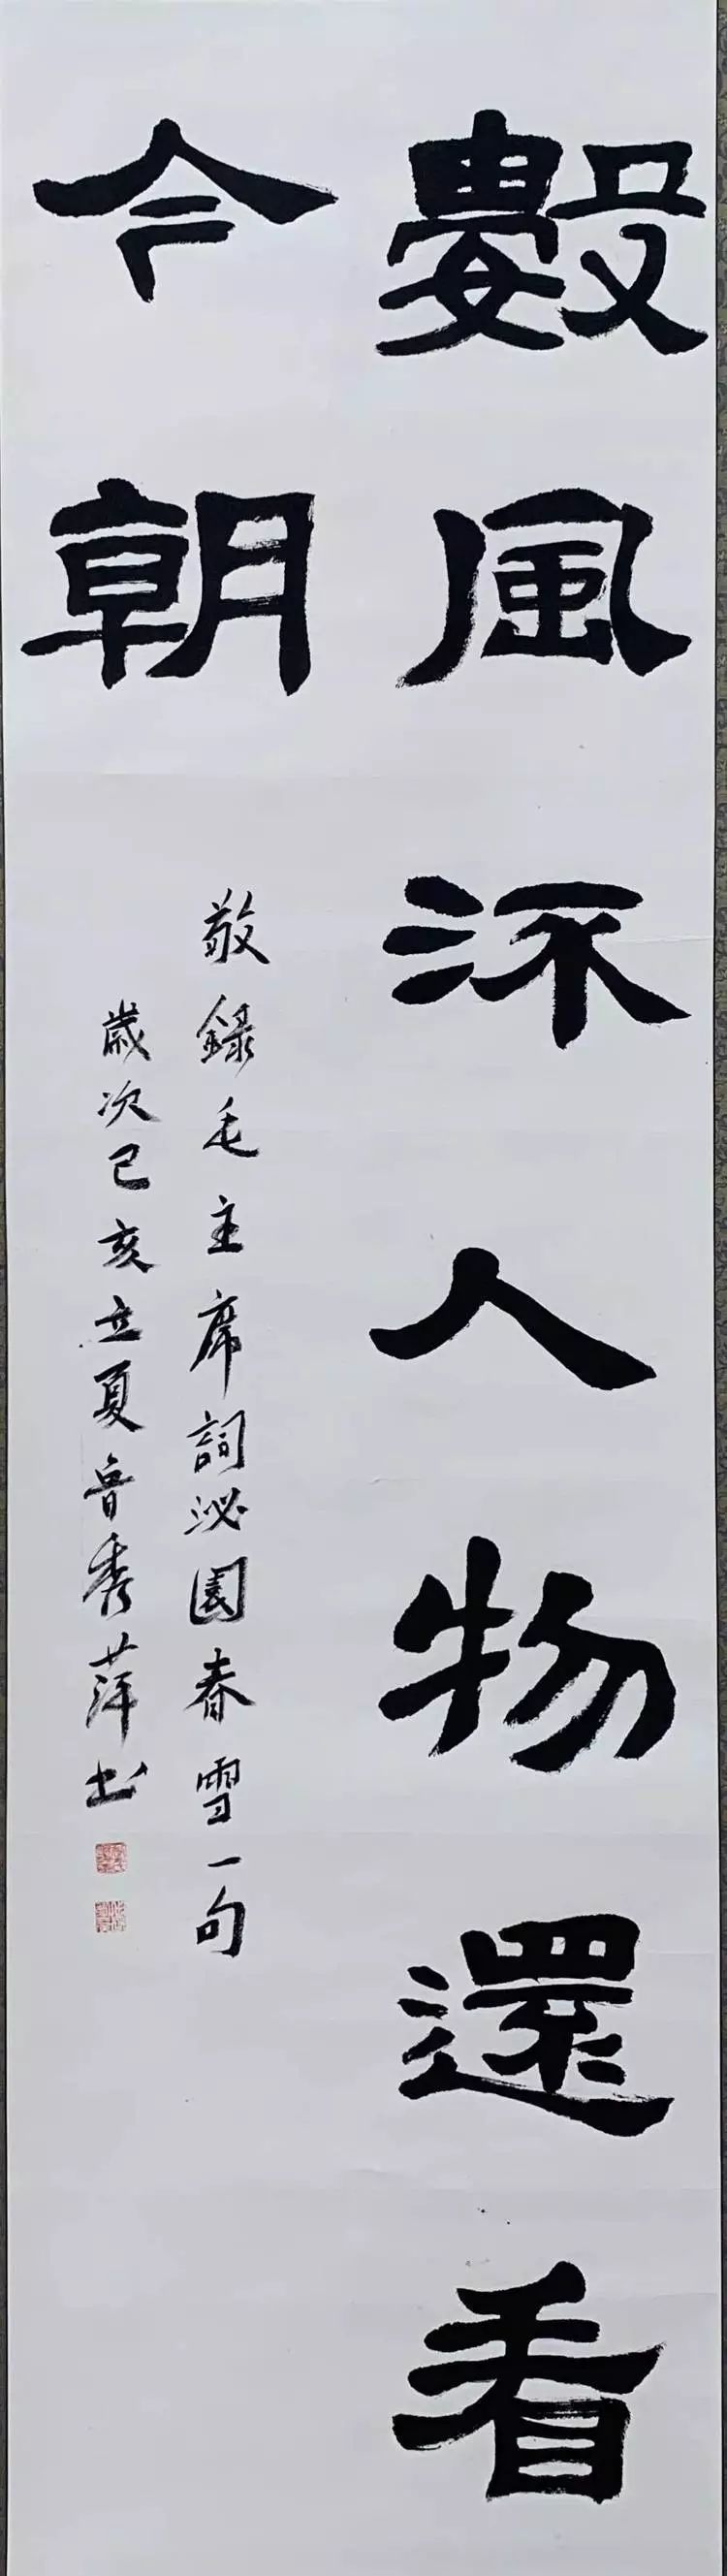 數風流人物還看
今朝
敬錄毛主席詞沁園春雪一句
歲次己亥立夏魯秀萍书